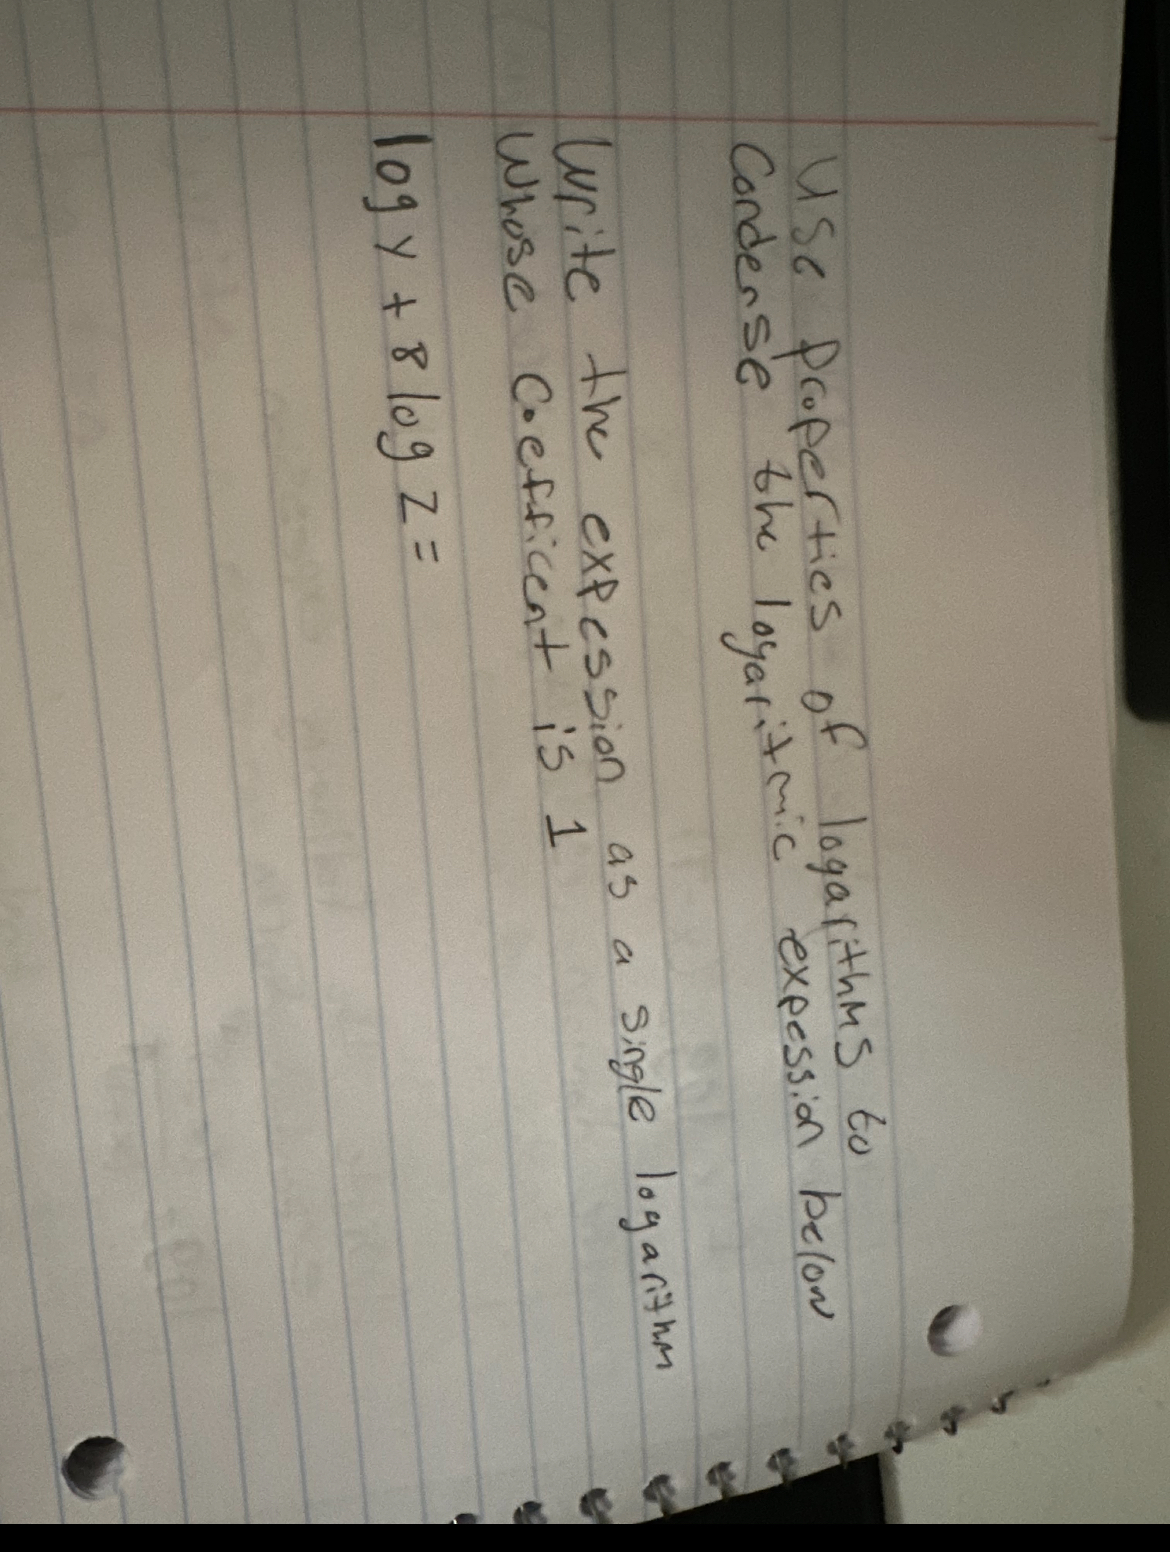 Use properties of logarithms to
Condense the logaritmic expession below
Write the expession as a single logarithm
Whose Coefficent is 1
log y + 8 log z =